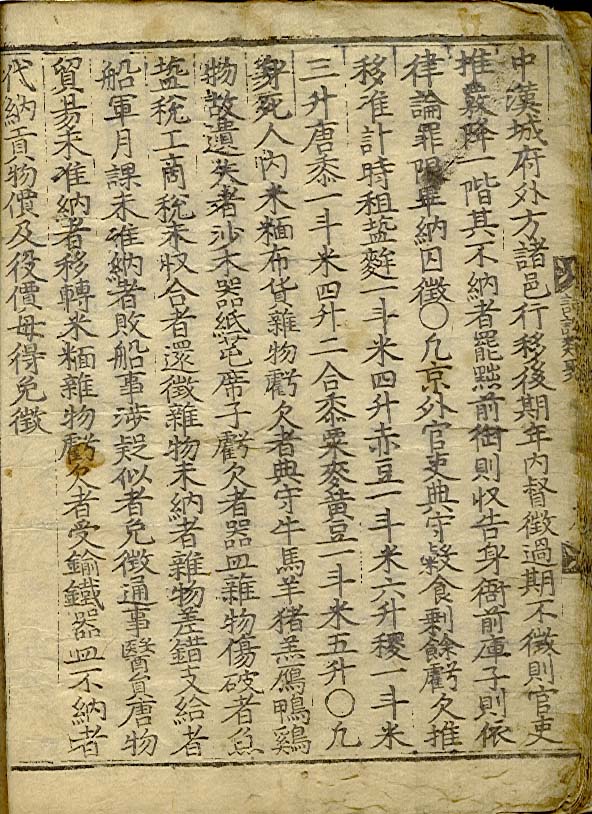 中漢城府外方諸邑行移後期年內督徵過期不徵則官吏
推覈降一階其不納者罷黜前御則收告身衙前庫子則依
律論罪限畢納囚徵〇凡京外官吏典守發食剩餘虧欠推
移准計時租䀋䴰一斗米四升赤豆一斗米六升稷一斗米
三升唐黍一斗米四升二合黍粟麥黃豆一斗米五升〇凡
身死人內米麵布貨雜物虧欠者典守牛馬羊猪羔鴈鴨鷄
物故遺失者沙木器紙芚席子虧欠者器皿雜物傷破者魚
䀋稅工商稅未收合者還徵雜物未納者雜物差錯支給者
船軍月課未准納者敗船事涉疑似者免徵通事醫員唐物
貿易未准納者移轉米麵雜物虧欠者受鍮鐵器皿不納者
代納貢物價及役價毋得免徵
類聚